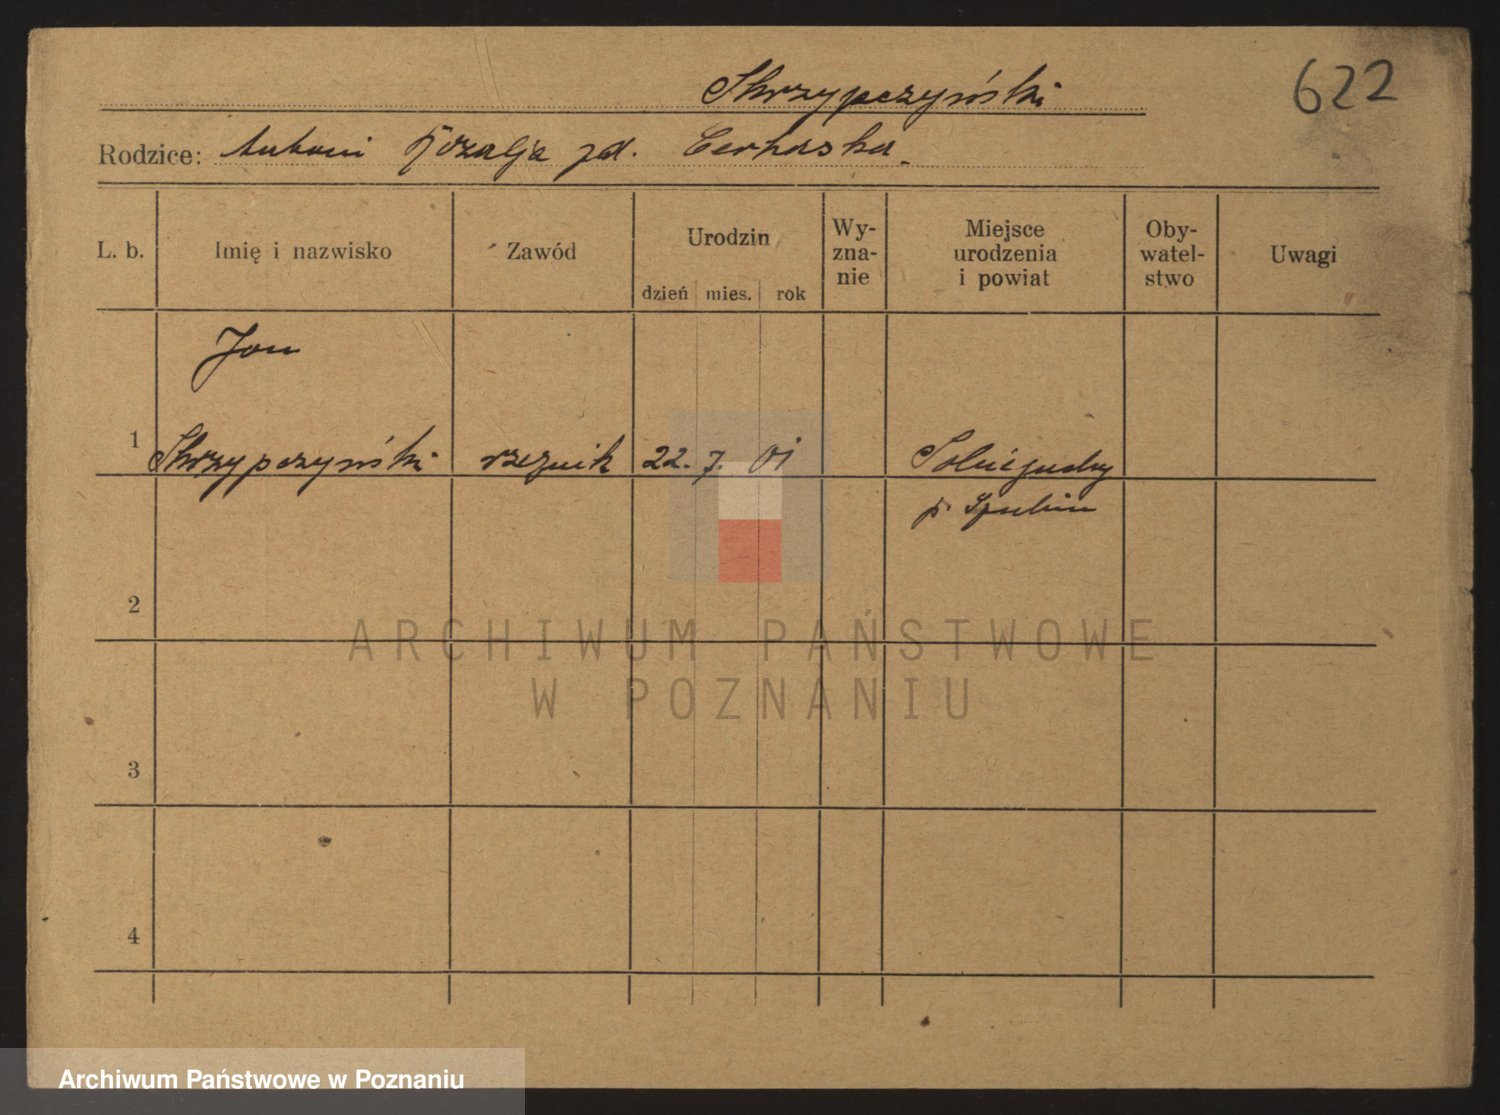 Skrzypczyński
622
Rodzice: Antoni Rozalja zd.
L. b.
Imię i nazwisko
Zawód
Urodzin
dzień mies. rok
Wy-
zna-
nie
Miejsce
urodzenia
i powiat
Oby-
watel-
stwo
Uwagi
Jan
1 Skrzypczyński rzeźnik 22. 7. 01
p. Szubin
2
ARCHIWUM PAŃSTWOWE
W POZNANIU
3
4
Archiwum Państwowe w Poznaniu